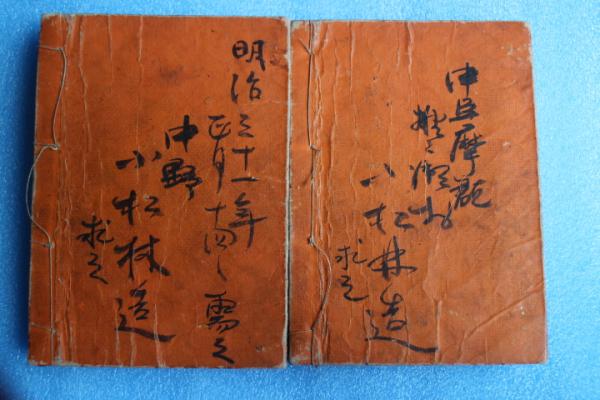 中巨摩郡
村
小松林造
求之
明治三十一年
正月十四日需之
中野
小松林造
求之